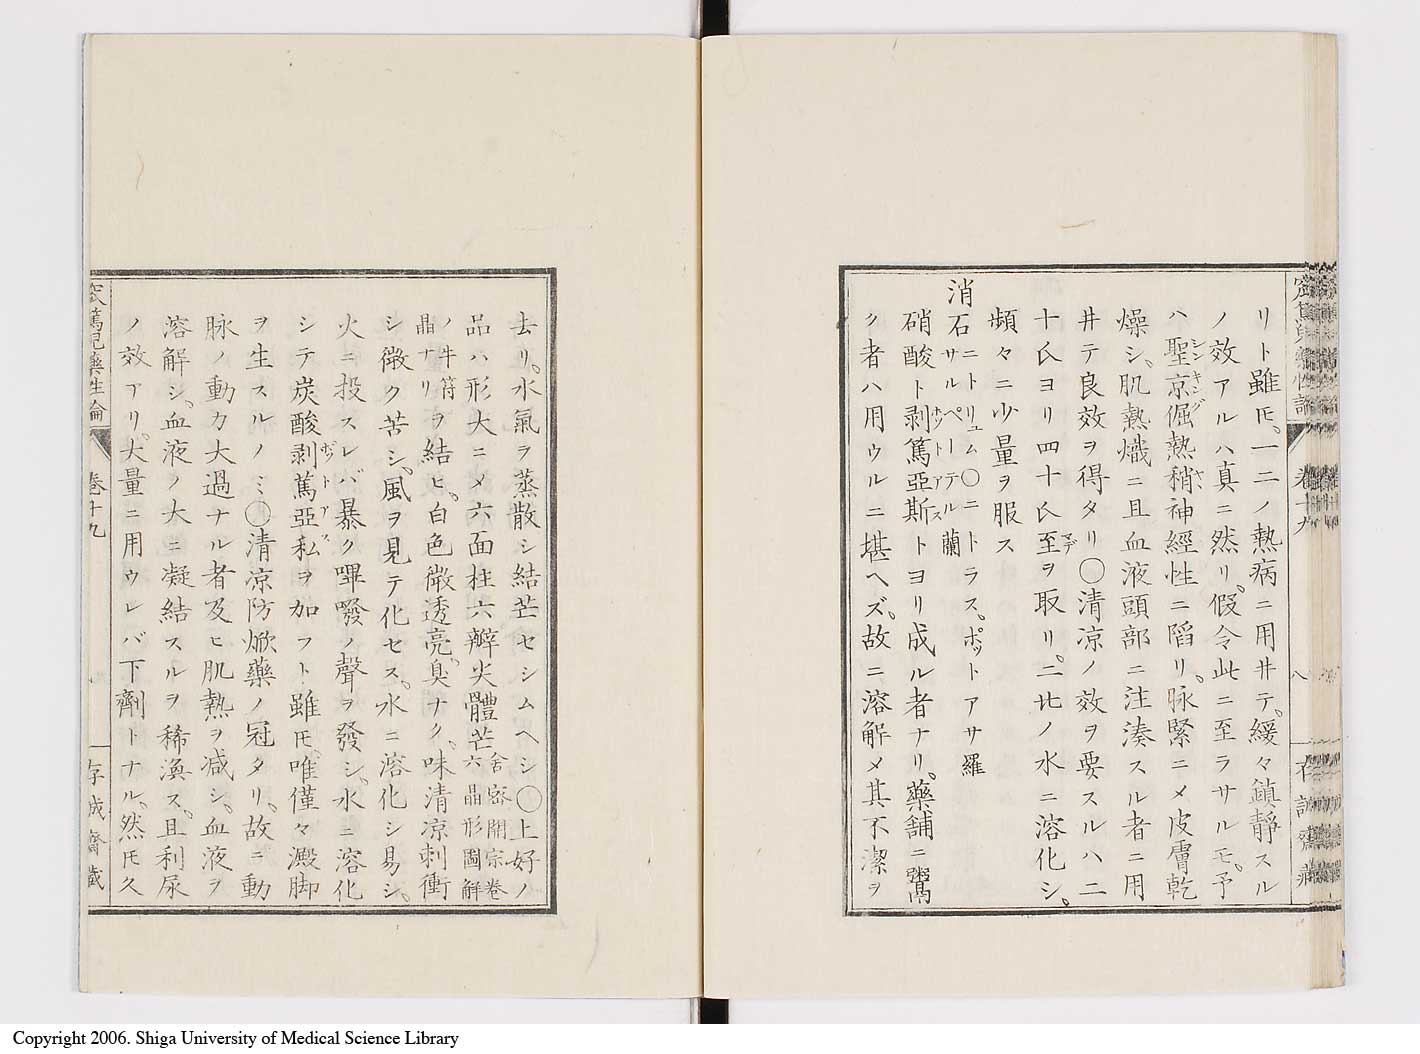 リト雖𪜈。一二ノ熱病ニ用井テ。緩々鎮靜スル
ノ效アルハ真ニ然リ。假令此ニ至ラサルモ。予
ハ聖京倔熱稍神經性ニ陷リ。脉緊ニメ皮膚乾
シンキングヤヽ
燥シ。肌熱熾ニ且血液頭部ニ注湊スル者ニ用
井テ良效ヲ得タリ〇清凉ノ效ヲ要スルハ二
十氏ヨリ四十氏至ヲ取リ。二㪷ノ水ニ溶化シ。
マデ
頻々ニ少量ヲ服ス
消石 ニトリュム〇ニトラス。ポットアサ羅
サルペーテル蘭
硝酸ト剥篤亞斯トヨリ成ル者ナリ。藥舗ニ鬻
ホットアス
ク者ハ用ウルニ堪ヘズ。故ニ溶解メ其不潔ヲ
卷十九
八
去リ。水氣ヲ蒸散シ結芒セシムヘシ〇上好ノ
品ハ形大ニメ六面柱六瓣尖體芒 舍密開宗卷
六晶形圖解
ノ牛符
晶ナリ ヲ結ヒ。白色微透亮。臭ナク。味清凉刺衝
シ微ク苦シ。風ヲ見テ化セス。水ニ溶化シ易シ。
火ニ投スレバ暴ク嗶㗶ノ聲ヲ發シ。水ニ溶化
シテ炭酸剥篤亞私ヲ加フト雖𪜈。唯僅々澱脚
ポットアス
ヲ生スルノミ〇清凉防焮藥ノ冠タリ。故ニ動
脉ノ動力大過ナル者及ヒ肌熱ヲ減シ。血液ヲ
溶解シ。血液ノ大ニ凝結スルヲ稀渙ス。且利尿
ノ效アリ。大量ニ用ウレバ下劑トナル。然𪜈久
篤兒藥性論
卷十九
存誠齋藏
Copyright 2006. Shiga University of Medical Science Library